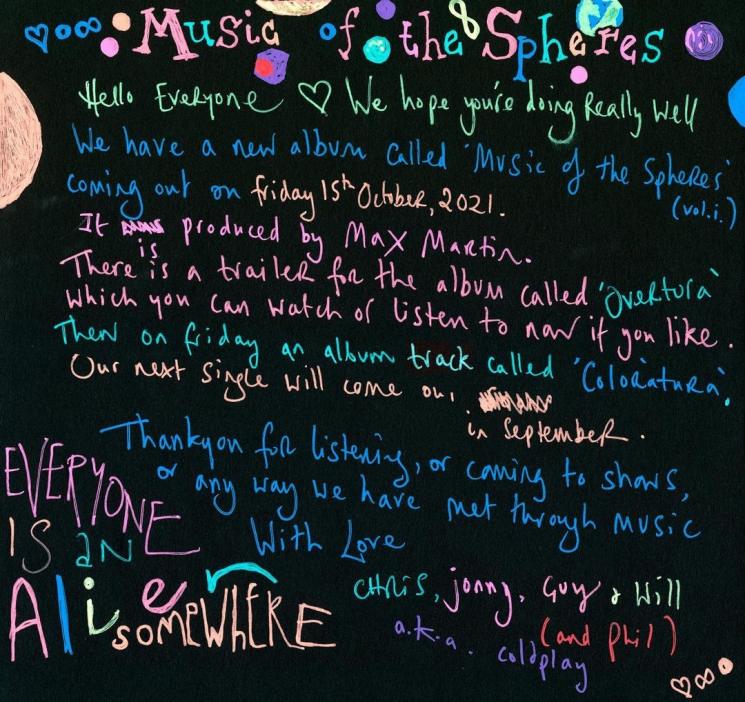 Music of the Spheres
Hello Everyone ♡ We hope you're doing Really well
We have a new album called 'Music of the Spheres'
(vol.i.)
coming out on friday 15th October, 2021.
It is produced by Max Martin.
There is a trailer for the album called 'Overtura'
which you can watch or listen to now if you like.
Then on friday an album track called 'Coloratura'.
Our next single will come out
in September.
Thankyou for listening, or coming to shows,
or any way we have met through music
With Love
EVERYONE
IS an
Alien
somewhERE
CHRis, jonny, Guy & Will
(and Phil)
a.k.a. coldplay